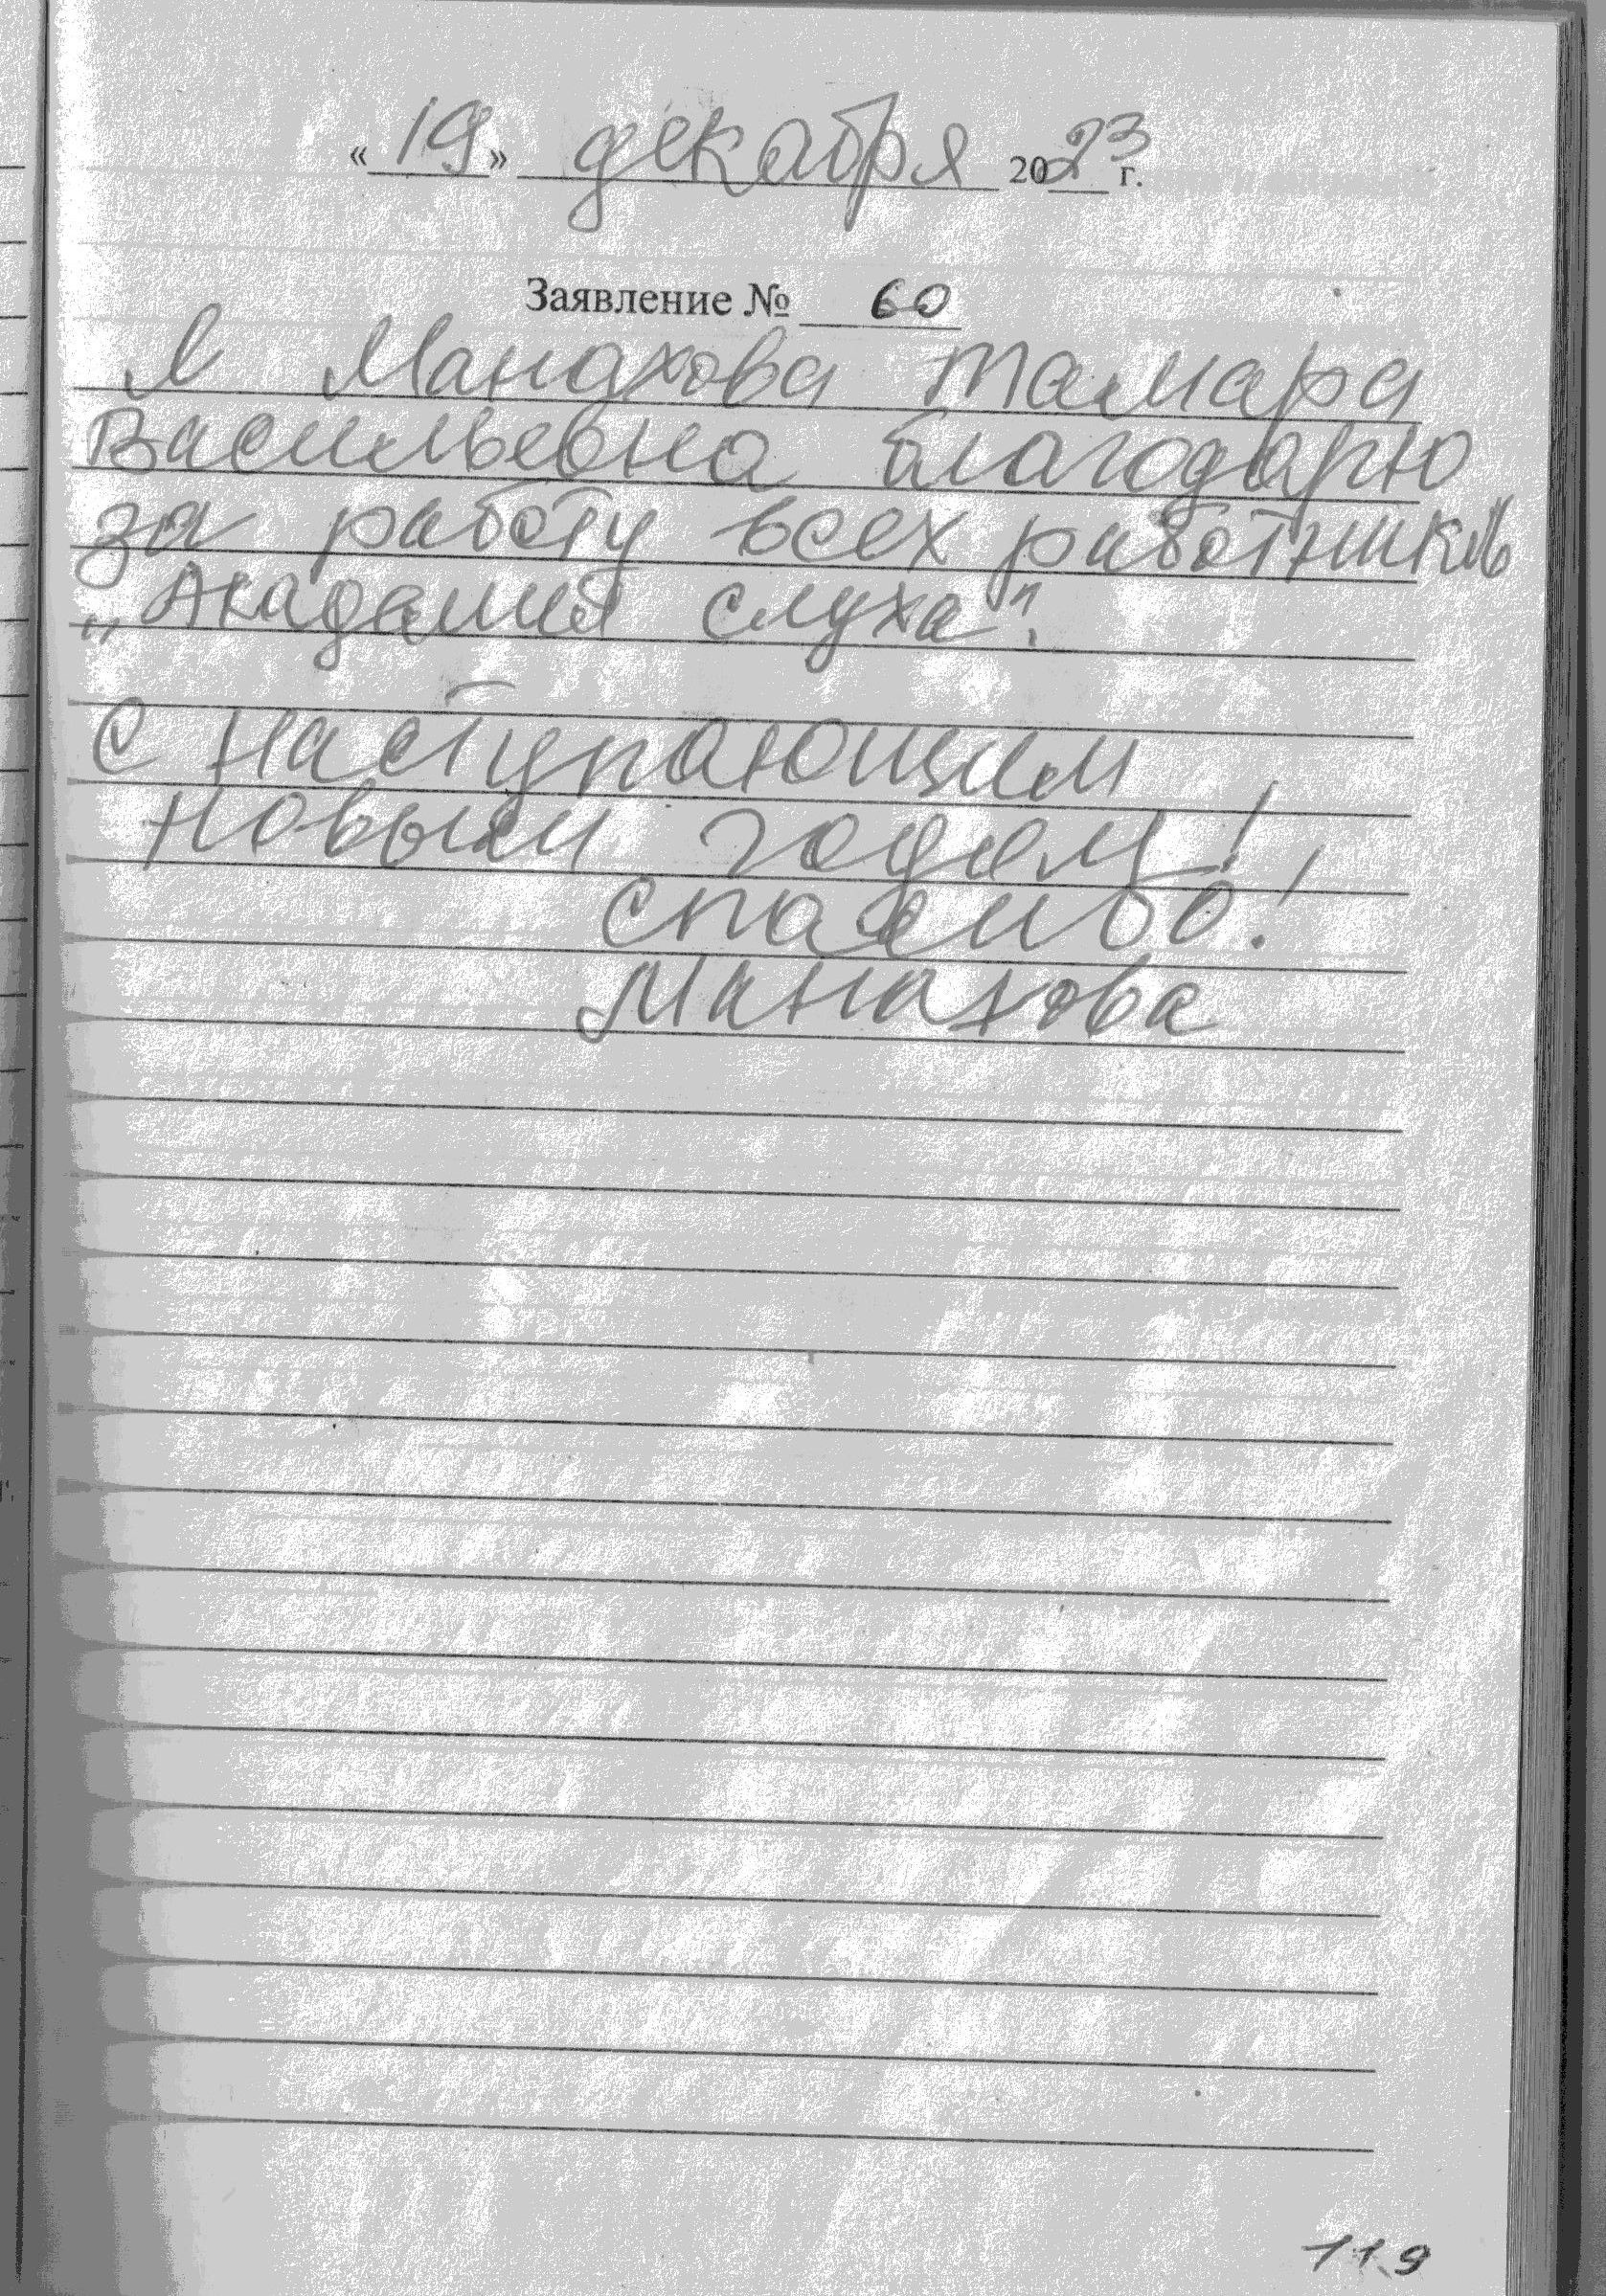 «19» декабря 2023 г.
Заявление № 60
Я Манахова Тамара
Васильевна благодарю
за работу всех работников
„Академия слуха".
С наступающим
Новым годом!
спасибо!
Манахова
119